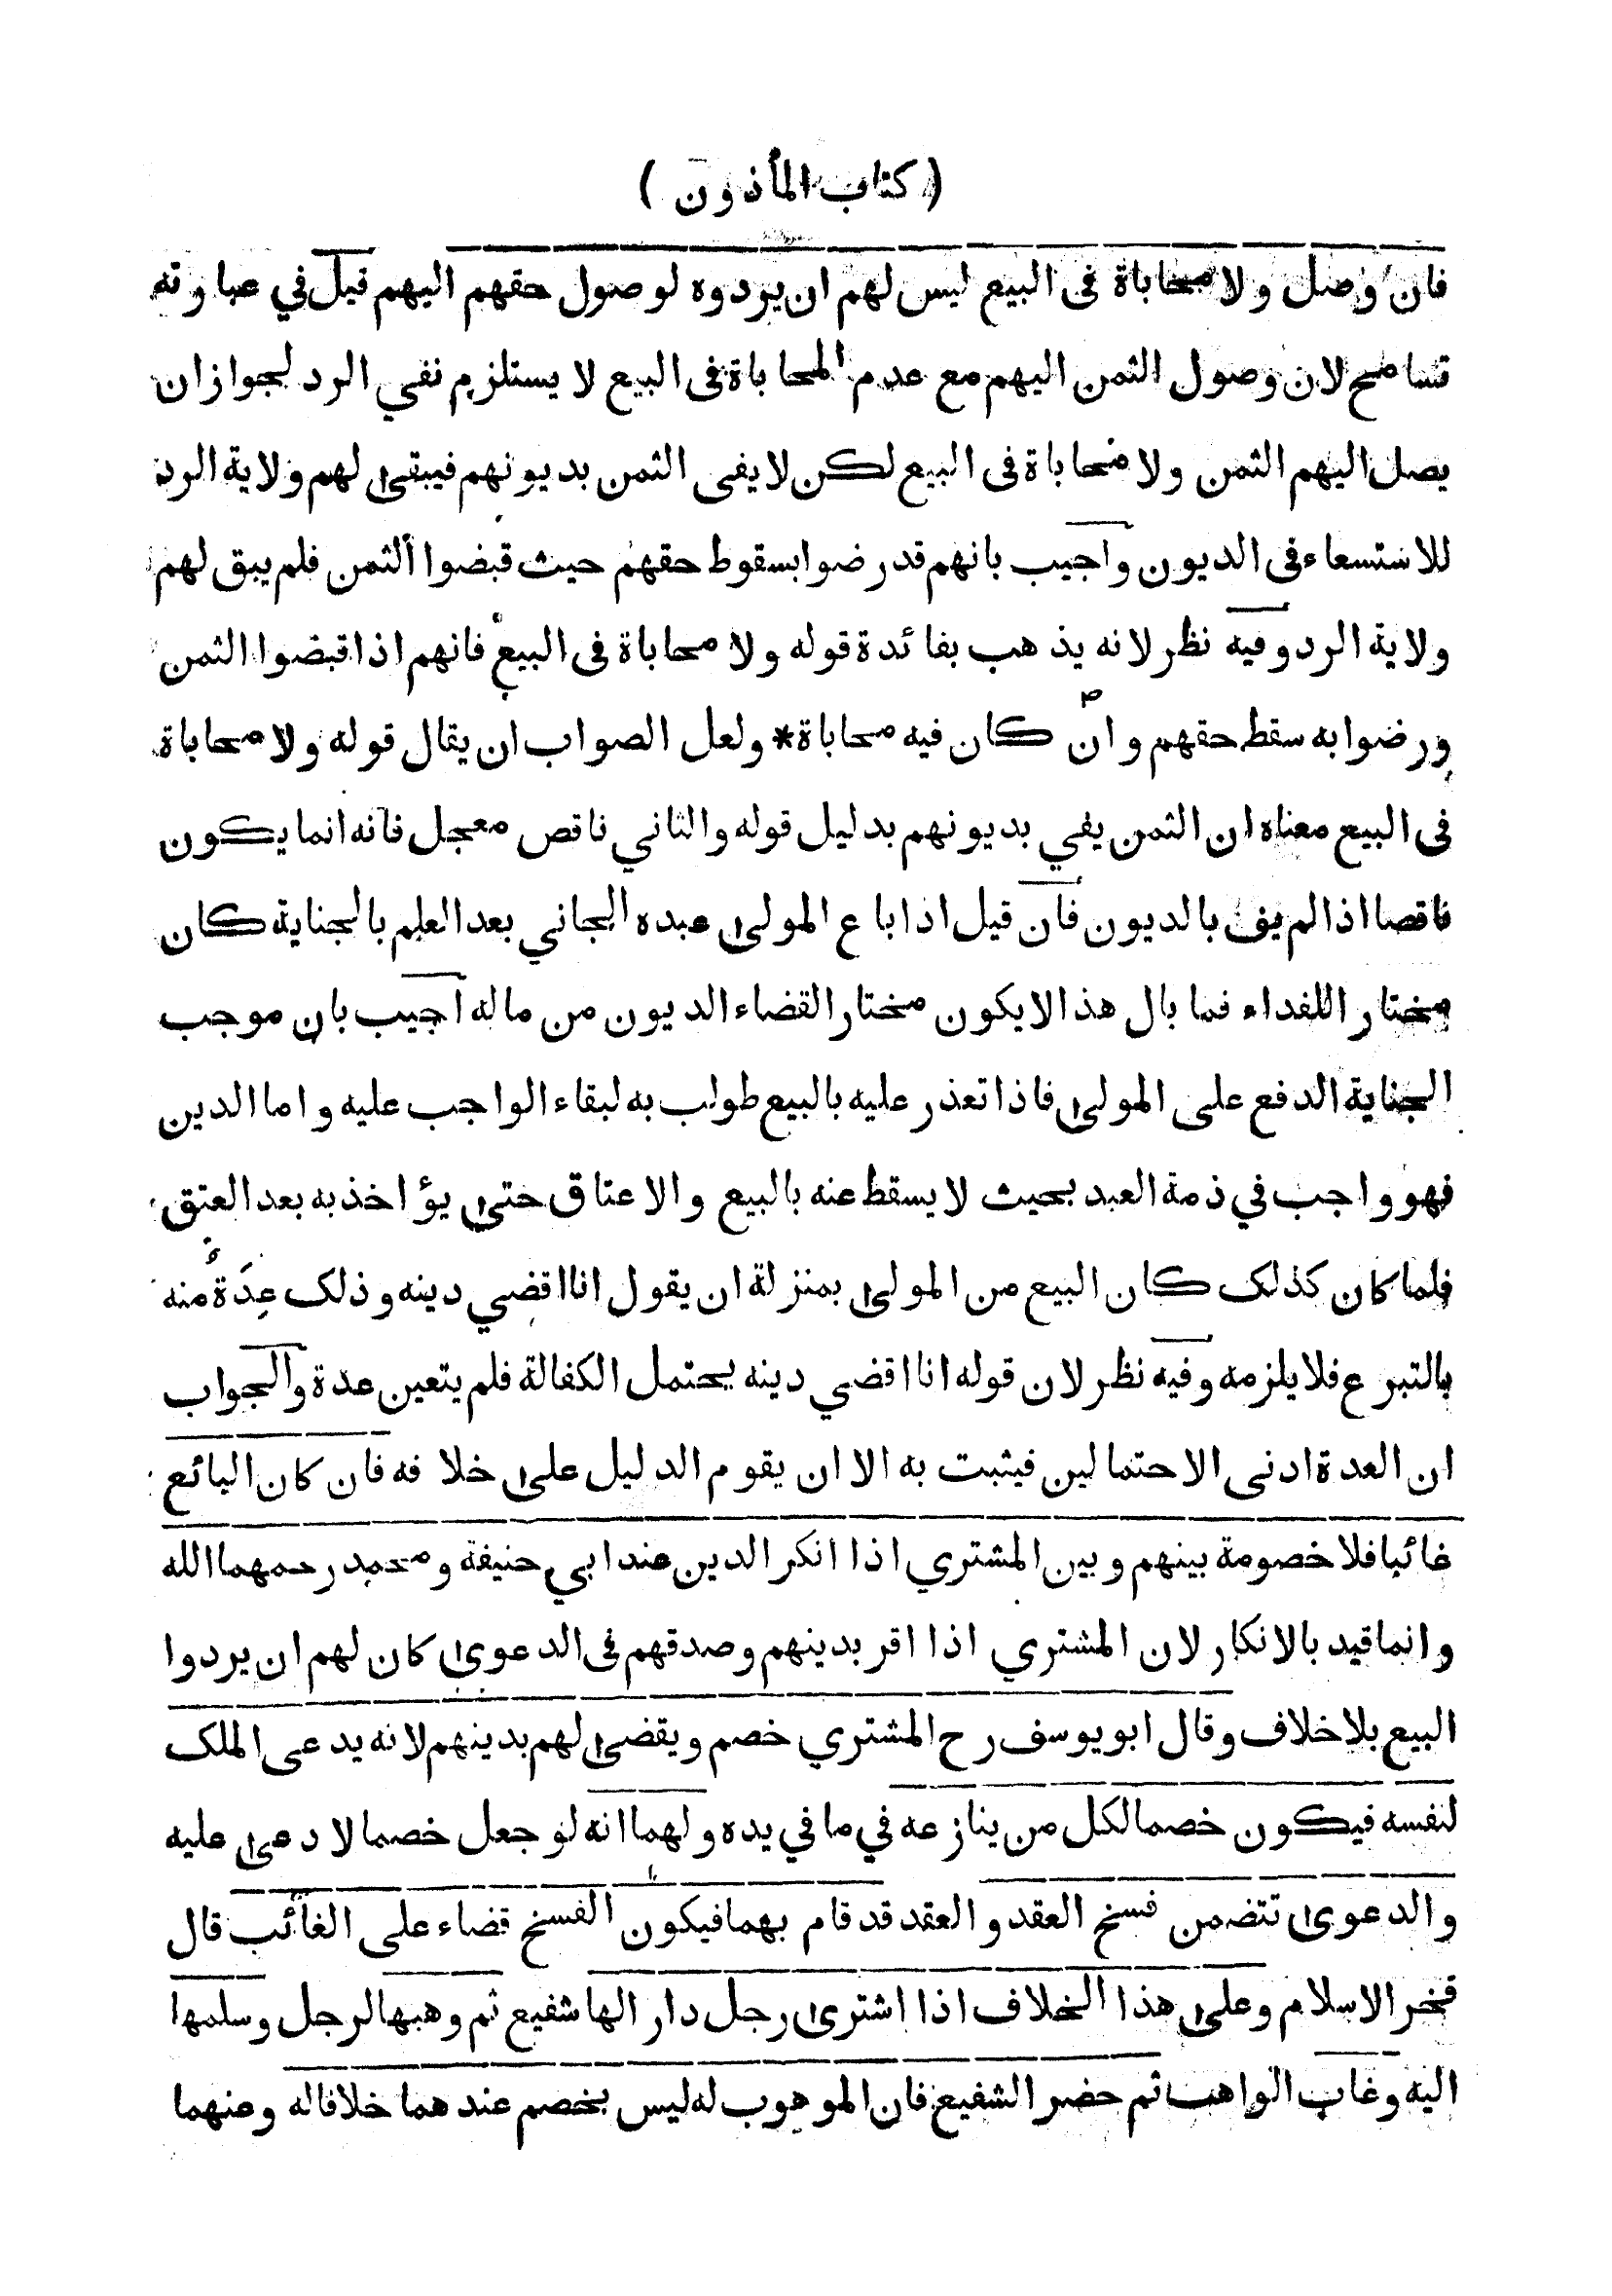 ( كتاب المأذون )
فان وصل ولا محاباة فى البيع ليس لهم ان يردوه لوصول حقهم اليهم قيل في عبارته
تسامح لان وصول الثمن اليهم مع عدم المحاباة فى البيع لا يستلزم نفي الرد لجواز ان
يصل اليهم الثمن ولا محاباة فى البيع لكن لا يفى الثمن بديونهم فيبقى لهم ولاية الرد
للاستسعاء فى الديون واجيب بانهم قد رضوا بسقوط حقهم حيث قبضوا الثمن فلم يبق لهم
ولاية الرد وفيه نظر لانه يذهب بفائدة قوله ولا محاباة فى البيع فانهم اذا قبضوا الثمن
ورضوا به سقط حقهم وان كان فيه محاباة * ولعل الصواب ان يقال قوله ولا محاباة
فى البيع معناه ان الثمن يفي بديونهم بدليل قوله والثاني ناقص معجل فانه انما يكون
ناقصا اذا لم يف بالديون فان قيل اذا باع المولى عبده الجاني بعد العلم بالجناية كان
مختار اللفداء فما بال هذا لا يكون مختار القضاء الديون من ماله اجيب بان موجب
الجناية الدفع على المولى فاذا تعذر عليه بالبيع طولب به لبقاء الواجب عليه واما الدين
فهو واجب في ذمة العبد بحيث لا يسقط عنه بالبيع والاعتاق حتى يؤاخذ به بعد العتق
فلما كان كذلك كان البيع من المولى بمنزلة ان يقول انا اقضي دينه وذلك عِدَةٌ منه
بالتبرع فلا يلزمه وفيه نظر لان قوله انا اقضي دينه يحتمل الكفالة فلم يتعين عدة والجواب
ان العدة ادنى الاحتمالين فيثبت به الا ان يقوم الدليل على خلافه فان كان البائع
غائبا فلا خصومة بينهم وبين المشتري اذا انكر الدين عند ابي حنيفة ومحمد رحمهما الله
وانما قيد بالانكار لان المشتري اذا اقر بدينهم وصدقهم فى الدعوى كان لهم ان يردوا
البيع بلا خلاف وقال ابو يوسف رح المشتري خصم ويقضى لهم بدينهم لانه يدعى الملك
لنفسه فيكون خصما لكل من ينازعه في ما في يده ولهما انه لو جعل خصما لادعى عليه
والدعوى تتضمن فسخ العقد والعقد قد قام بهما فيكون الفسخ قضاء على الغائب قال
فخر الاسلام وعلى هذا الخلاف اذا اشترى رجل دار الها شفيع ثم وهبها لرجل وسلمها
اليه وغاب الواهب ثم حضر الشفيع فان الموهوب له ليس بخصم عندهما خلافا له وعنهما